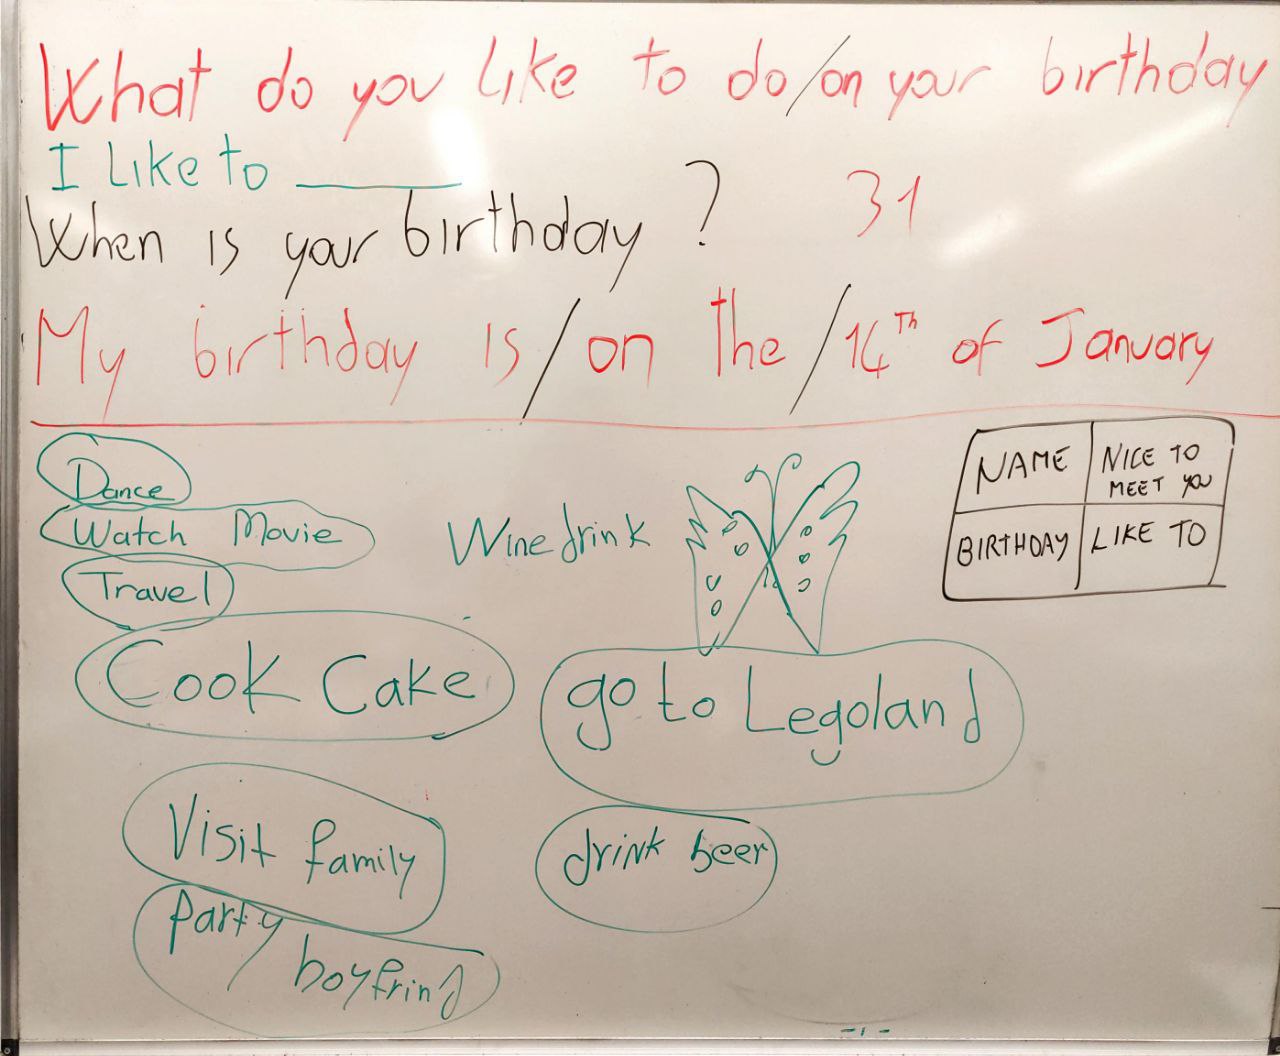 What do you like to do/on your birthday
I like to ______
When is your birthday ?
31
My birthday is/on the/14th of January
Dance
Watch Movie
Travel
Cook Cake
Visit family
Party boyfrind
Wine drink
go to Legoland
drink beer
NAME
NICE TO
MEET YOU
BIRTHDAY
LIKE TO